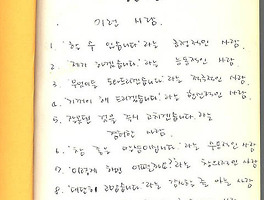 이런 사람
1. '할 수 있습니다' 라는 긍정적인 사람.
2. '제가 하겠습니다' 라는 능동적인 사람.
3. '무엇이든 도와드리겠습니다' 라는 적극적인 사람
4. '기꺼이 해 드리겠습니다' 라는 헌신적인 사람.
5. '잘못된 것은 즉시 고치겠습니다' 라는
겸허한 사람.
6. '참 좋은 말씀입니다' 라는 수용적인 사람
7. '이렇게 하면 어떨까요?' 라는 창의적인 사람
8. '대단히 고맙습니다' 라는 감사할 줄 아는 사람